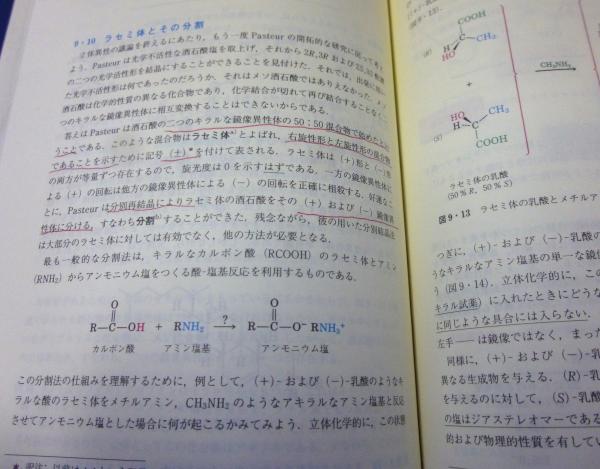 9・10 ラセミ体とその分割
立体異性の議論を終えるにあたり，もう一度Pasteurの開拓的な研究に戻って考え
よう．Pasteurは光学不活性な酒石酸塩を取上げ，それから2R,3R および 2S,3S
の二つの光学活性形を結晶にすることができることを見付けた．それでは，出発に
た光学不活性形は何であったのだろうか．それはメソ酒石酸ではありえなかった．メソ
酒石酸は化学的性質の異なる化合物であり，化学結合が切れて再び結合することなく
つのキラルな鏡像異性体に相互変換することはできないからである．
答えはPasteurは酒石酸の二つのキラルな鏡像異性体の50：50混合物で始めたとい
うことである．このような混合物はラセミ体とよばれ，右旋性形と左旋性形の混合物
であることを示すために記号（±）*を付けて表される．ラセミ体は（+）形と（−）形
の両方が等量ずつ存在するので，旋光度は0を示すはずである．一方の鏡像異性体に
よる（+）の回転は他方の鏡像異性体による（−）の回転を正確に相殺する．好運なこ
とに，Pasteurは分別再結晶によりラセミ体の酒石酸をその（+）および（−）鏡像異
性体に分ける，すなわち分割することができた．残念ながら，彼の用いた分別結晶法
は大部分のラセミ体に対しては有効でなく，他の方法が必要となる．
最も一般的な分割法は，キラルなカルボン酸（RCOOH）のラセミ体とアミン
（RNH₂）からアンモニウム塩をつくる酸-塩基反応を利用するものである．
O O
R—C—OH + RNH₂ ?→ R—C—O⁻ RNH₃⁺
カルボン酸 アミン塩基 アンモニウム塩
この分割法の仕組みを理解するために，例として，（+）- および（−）-乳酸のようなキ
ラルな酸のラセミ体をメチルアミン，CH₃NH₂ のようなアキラルなアミン塩基と反応
させてアンモニウム塩とした場合に何が起こるかみてみよう．立体化学的に，この状態
（図9・13）．
COOH
H C CH₃
HO
(R)
+
CH₃NH₂
(S)
HO CH₃
H C
COOH
ラセミ体の乳酸
（50％ R，50％ S）
図9・13 ラセミ体の乳酸とメチルア
つぎに，（+）- および（−）-乳酸の
うなキラルなアミン塩基の単一な鏡像
う（図9・14）．立体化学的に，この
キラル試薬）に入れたときにどうな
に同じような具合には入らない．
左手—は鏡像ではなく，まった
同様に，（+）- および（−）-乳酸
異なる生成物を与える．(R)-乳
を与えるのに対して，(S)-乳酸
の塩はジアステレオマーである
的および物理的性質を有してい